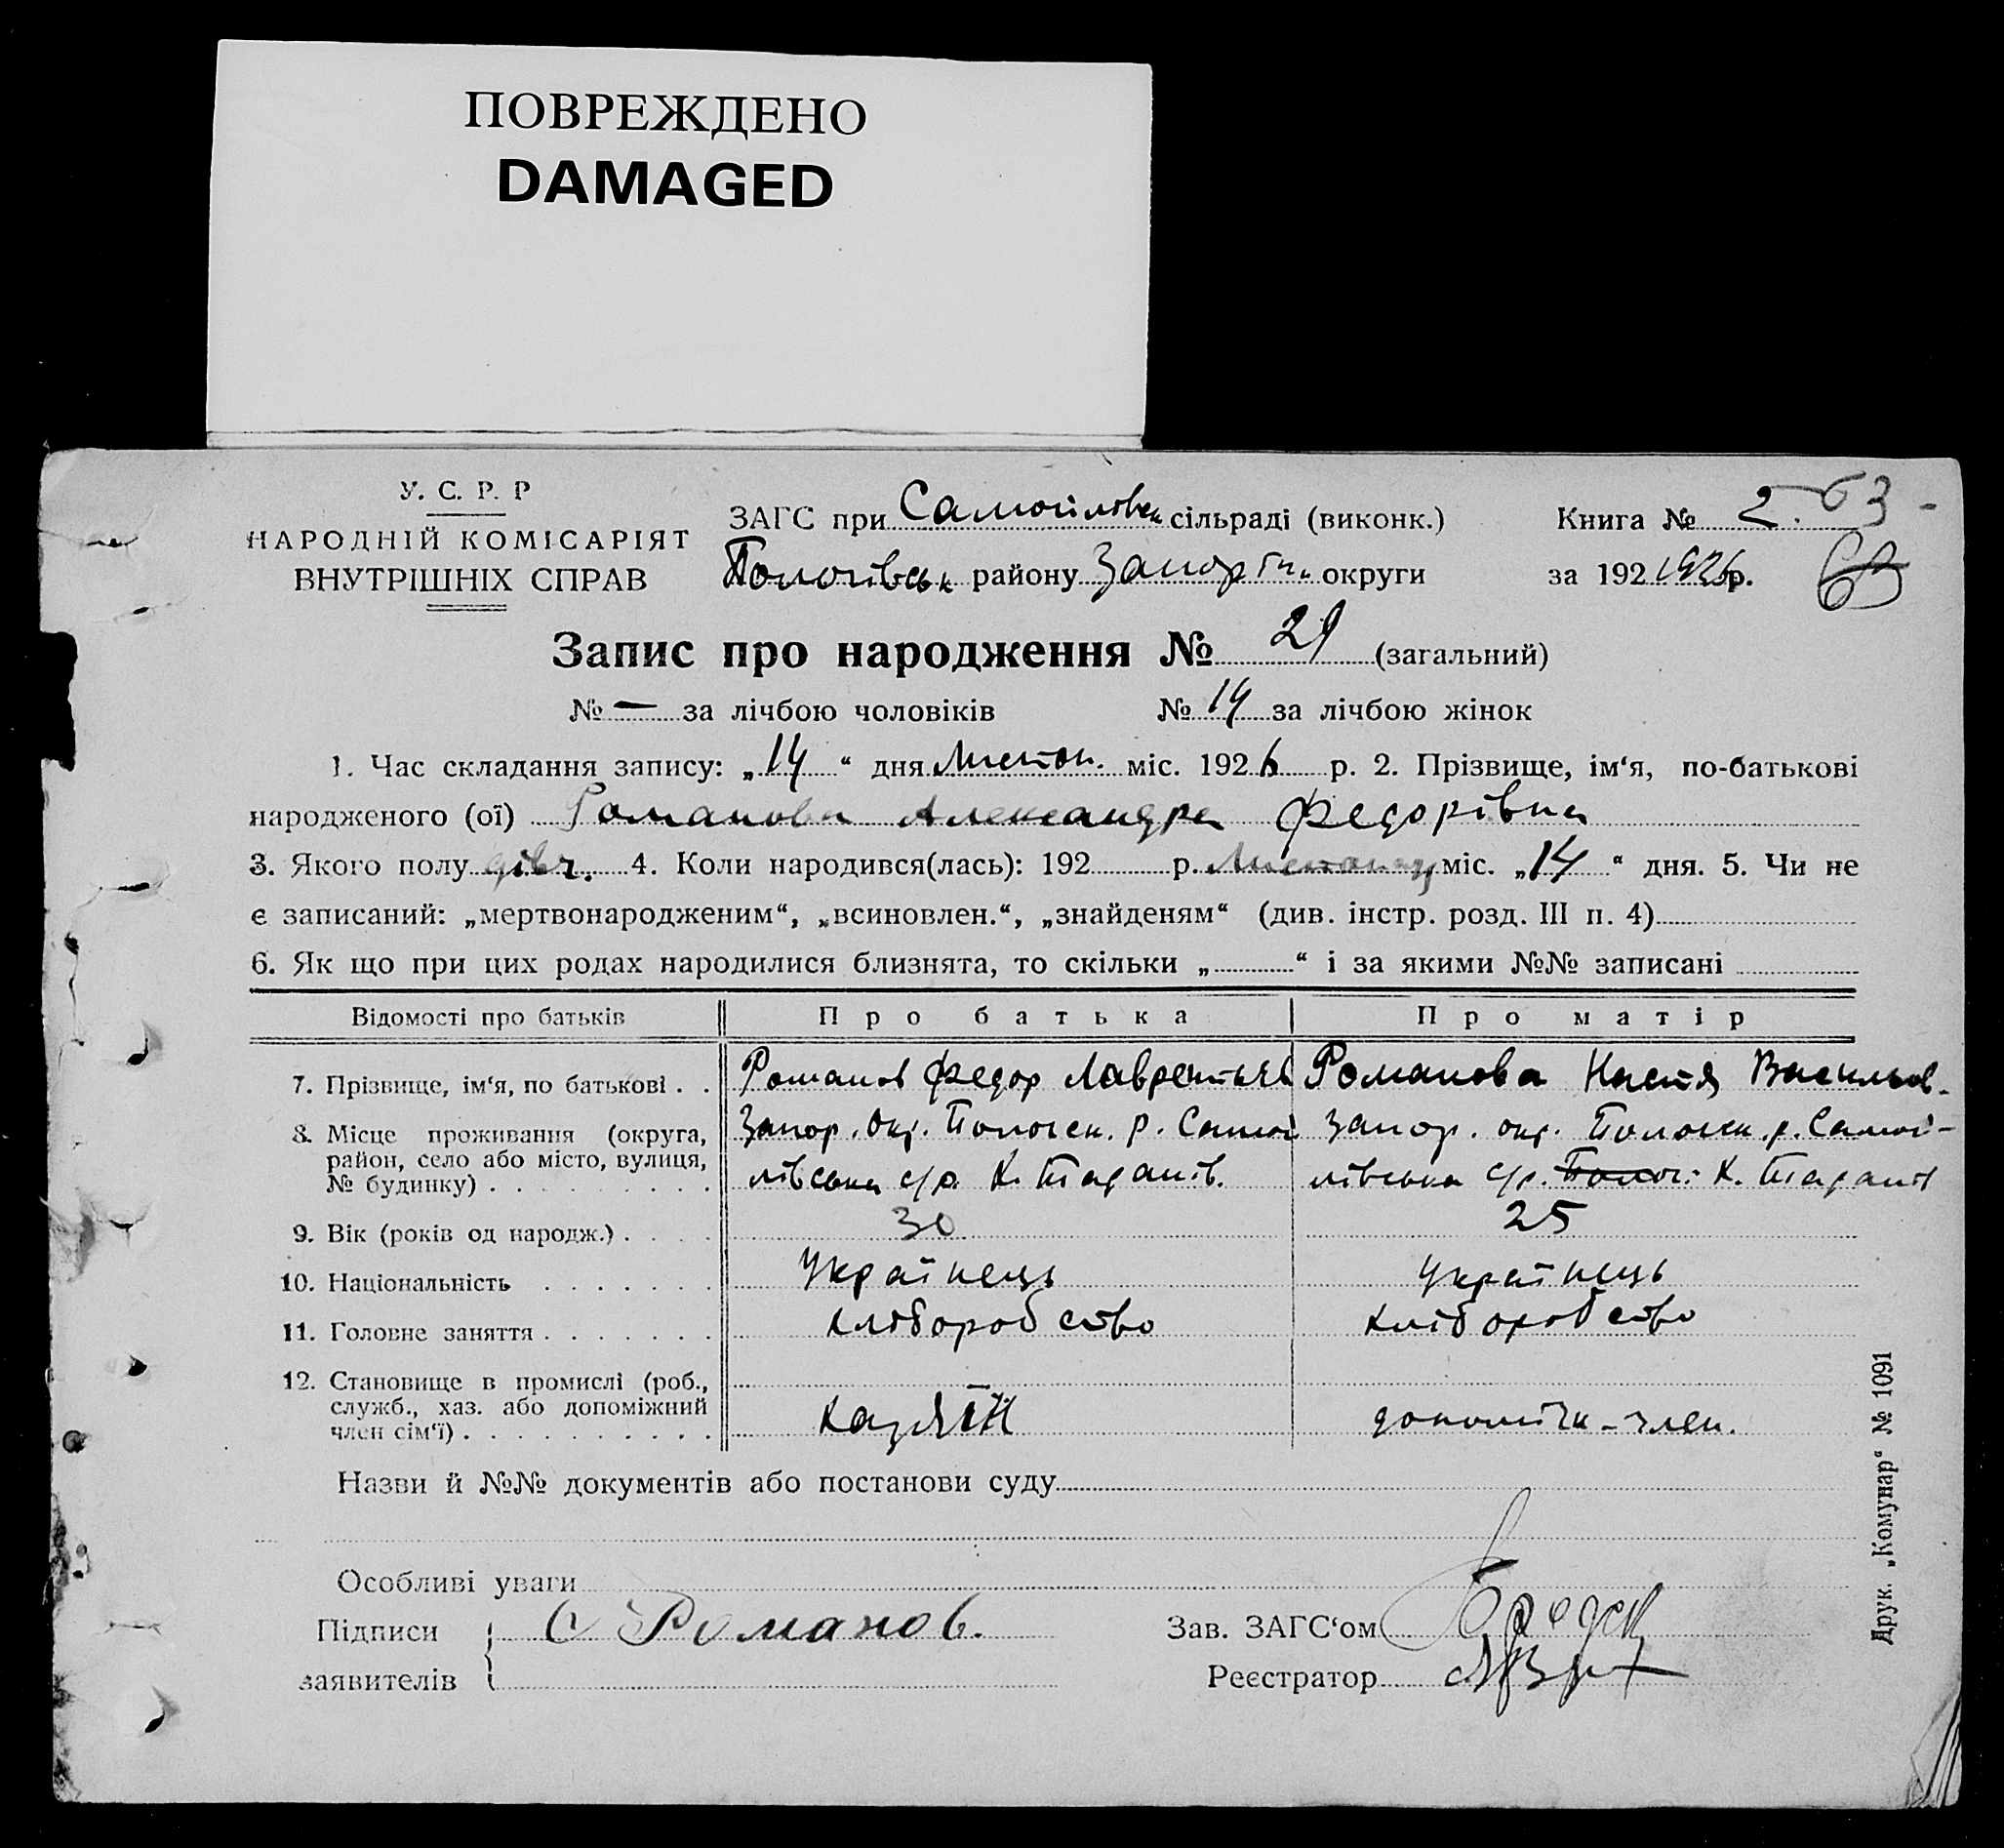 ПОВРЕЖДЕНО
DAMAGED
У. С. Р. Р
НАРОДНІЙ КОМІСАРІЯТ
ВНУТРІШНІХ СПРАВ
ЗАГС при Самойлівськ сільраді (виконк.)
Пологівськ району Запор округи
Книга № 2.
63
за 192 1926 р.
63
Запис про народження № 29 (загальний)
№ — за лічбою чоловіків № 14 за лічбою жінок
1. Час складання запису: „14“ дня Листоп. міс. 1926 р. 2. Прізвище, ім‘я, по-батькові
народженого (ої) Романова Александра Федорівна
3. Якого полу дівч. 4. Коли народився(лась): 192 р. Листопад міс. „14“ дня. 5. Чи не
є записаний: „мертвонародженим“, „всиновлен.“, „знайденям“ (див. інстр. розд. III п. 4)
6. Як що при цих родах народилися близнята, то скільки „ “ і за якими №№ записані
Відомості про батьків Про батька Про матір
7. Прізвище, ім‘я, по батькові . . Романов Федор Лаврентьев Романова Настя Васильов-
8. Місце проживання (округа, район, село або місто, вулиця, № будинку)
Запор. Окр. Пологск. р. Самої
лівська с/р. К.
Запор. окр. Пологск. р. Самої-
лівська с/р. К.
9. Вік (років од народж.) 30 25
10. Національність Українець Українець
11. Головне заняття хліборобство хліборобство
12. Становище в промислі (роб., служб., хаз. або допоміжний член сім‘ї) хазяїн допоміжн-член.
Назви й №№ документів або постанови суду
Особливі уваги
Підписи заявителів Романов.
Зав. ЗАГС‘ом
Реєстратор
Друк. „Комунар“ № 1091